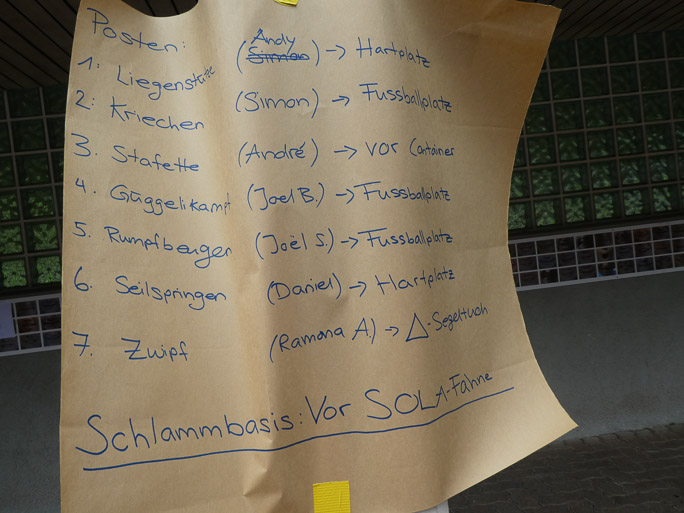 Posten:
1: Liegenstütze (Andy Simon) → Hartplatz
2: Kriechen (Simon) → Fussballplatz
3. Stafette (André) → vor Container
4. Güggelikampf (Joel B.) → Fussballplatz
5. Rumpfbeugen (Joël S.) → Fussballplatz
6. Seilspringen (Daniel) → Hartplatz
7. Zwipf (Ramona A.) → △-Segeltuch
Schlammbasis: Vor SOLA-Fahne